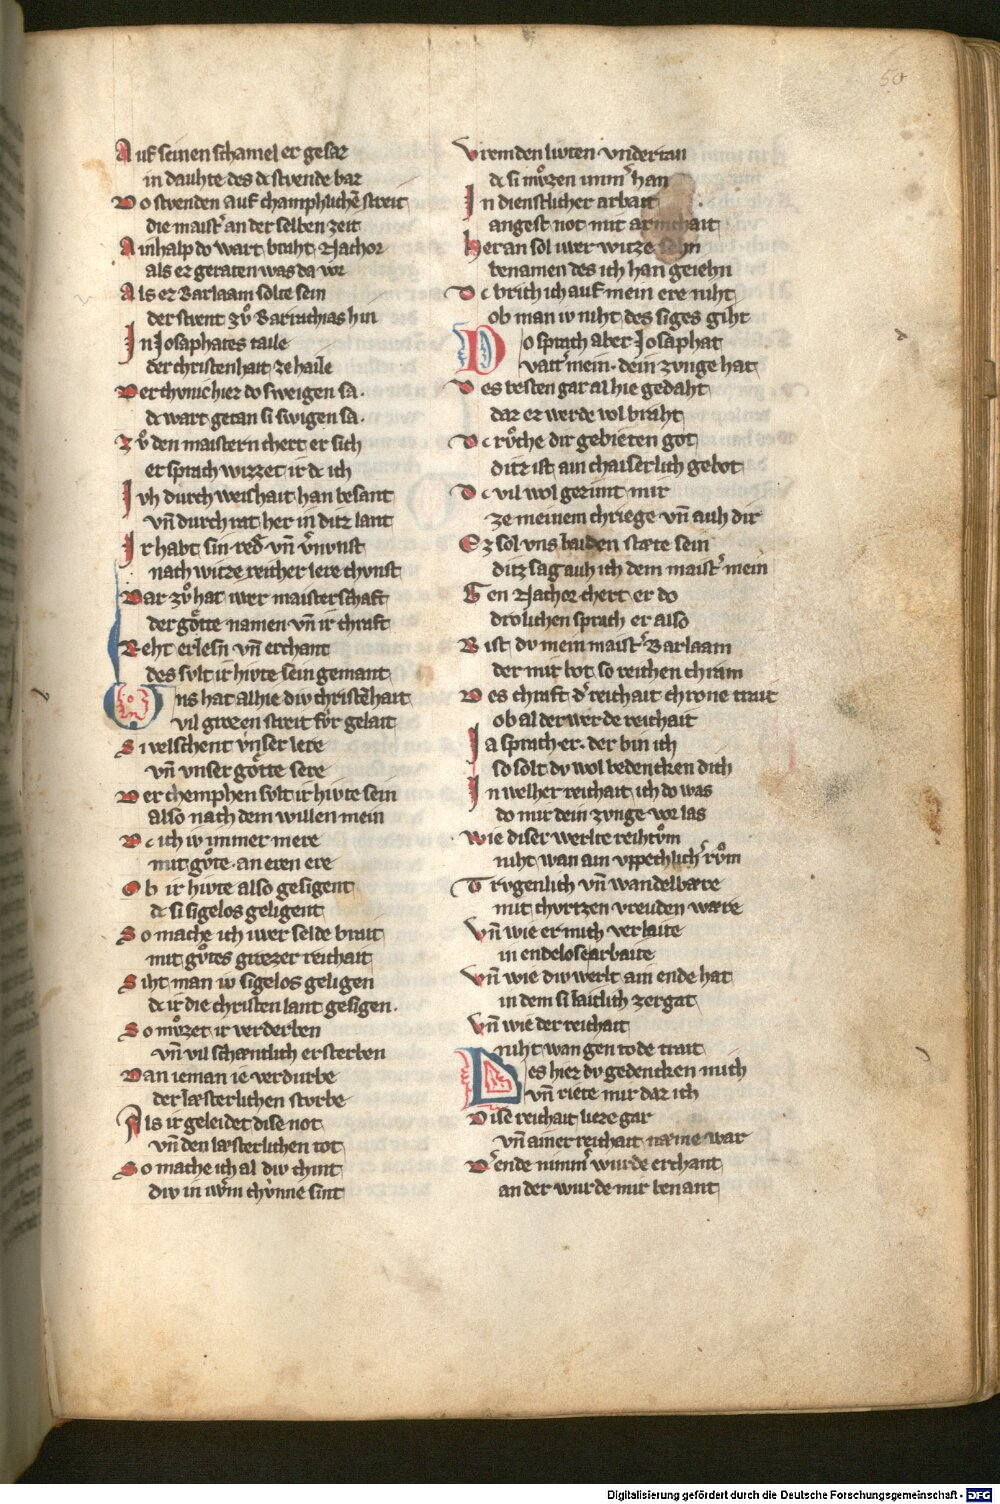 50
Auf seinen schamel er gesaz
in dauhte des dc stvende baz
Do stvenden auf champhlichē streit
die maist͛ an der selben zeit
Ainhalp do wart braht Nachor
als ez geraten was da vor
Als ez Barlaam solte sein
der stvent zvͦ Barrachias hin
In Josaphates taile
der christenhait ze haile
Der chvnic hiez do sweigen sa.
dc wart getan si swigen sa.
Zvͦ den maistern chert er sich
er sprach wizzet ir dc ich
Ivh durch weishait han besant
vn̄ durch rat her in ditz lant
Ir habt sin red vn̄ v͛nvnst
nach witze reicher lere chvnst
Dar zvͦ hat iwer maisterschaft
der goͤtte namen vn̄ ir chraft
Reht erlesn̄ vn̄ erchant
des svlt ir hivte sein gemant
Vns hat alhie div christēhait
vil grozen streit fvͤr gelait
Si velschent vnser lere
vn̄ vnser goͤtte sere
Der chemphen svlt ir hivte sein
also nach dem willen mein
Dc ich iv immer mere
mit gvͦte. an eren ere
Ob ir hivte also gesigent
dc si sigelos geligent
So mache ich iwer selde brait
mit goͤtes grozer reichait
Siht man iv sigelos geligen
dc ir die christen lant gesigen.
So mvͦzet ir verderben
vn̄ vil schæntlich ersterben
Dan ieman ie verdurbe
der læsterlichen stvrbe
Als ir geleidet dise not
vn̄ den læsterlichen tot
So mache ich al div chint
div in iwͤrm chvnne sint
Vremden livten vndertan
dc si mvͦzen imm͛ han
In dienstlicher arbait
angest not mit armchait
Heran sol iwer witze sehn
benamen des ich han geiehn
Dc brich ich auf mein ere niht
ob man iv niht des siges giht
Do sprach aber Josaphat
vatt͛ mein. dein zvnge hat
Des besten gar al hie gedaht
daz ez werde wol braht
Dc rvͦche dir gebieten got
ditz ist ain chaiserlich gebot
Dc vil wol gezimt mir
ze meinem chriege vn̄ auh dir
Ez sol vns baiden stæte sein
ditz sag auh ich dem maist͛ mein
Gen Nachor chert er do
drolichen sprach er also
Bist dv mein maist͛ Barlaam
der mir bot so reichen chram
Des chraft d͛ reichait chrone trait
ob al der werde reichait
Ja sprach er. der bin ich
so solt dv wol bedencken dich
In welher reichait ich do was
do mir dein zvnge vor las
Wie diser werlte reihtvͦm
niht wan ain vppechlich͛ rvͦm
Trvgenlich vn̄ wandelbære
mit chvrtzen vreuden wære
Vn̄ wie er mich verlaite
in endelose arbaite
Vn̄ wie div werlt ain ende hat
in dem si laitlich zergat
Vn̄ wie der reichait
niht wan gen tode trait
Des hiez dv gedencken mich
vn̄ riete mir daz ich
Dise reichait lieze gar
vn̄ ainer reichait næme war
D͛ ende nimm͛ wurde erchant
an der wurde mir benant
Digitalisierung gefördert durch die Deutsche Forschungsgemeinschaft - DFG